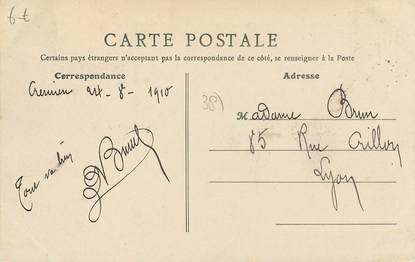 6 €
CARTE POSTALE
Certains pays étrangers n'acceptant pas la correspondance de ce côté, se renseigner à la Poste
Correspondance
Cremieu 24 - 8 - 1910
Tout va bien
Adresse
38)
Madame Brun
85 Rue Crillon
Lyon